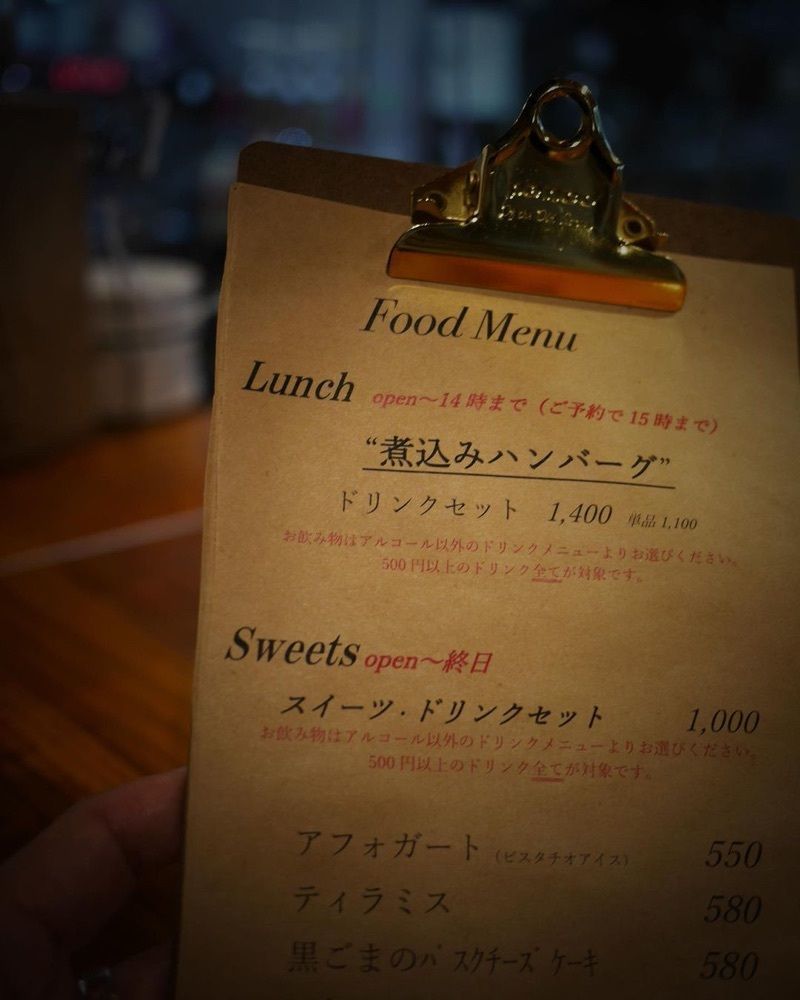 Food Menu
Lunch open〜14時まで（ご予約で15時まで）
“煮込みハンバーグ”
ドリンクセット 1,400 単品 1,100
お飲み物はアルコール以外のドリンクメニューよりお選びください。
500円以上のドリンク全てが対象です。
Sweets open〜終日
スイーツ・ドリンクセット 1,000
お飲み物はアルコール以外のドリンクメニューよりお選びください。
500円以上のドリンク全てが対象です。
アフォガート（ピスタチオアイス） 550
ティラミス 580
黒ごまのバスクチーズケーキ 580